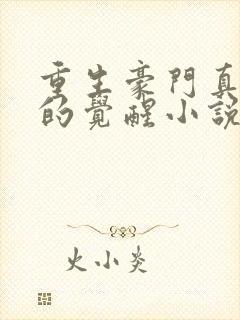 重生豪門真
的覺醒小說
火小炎